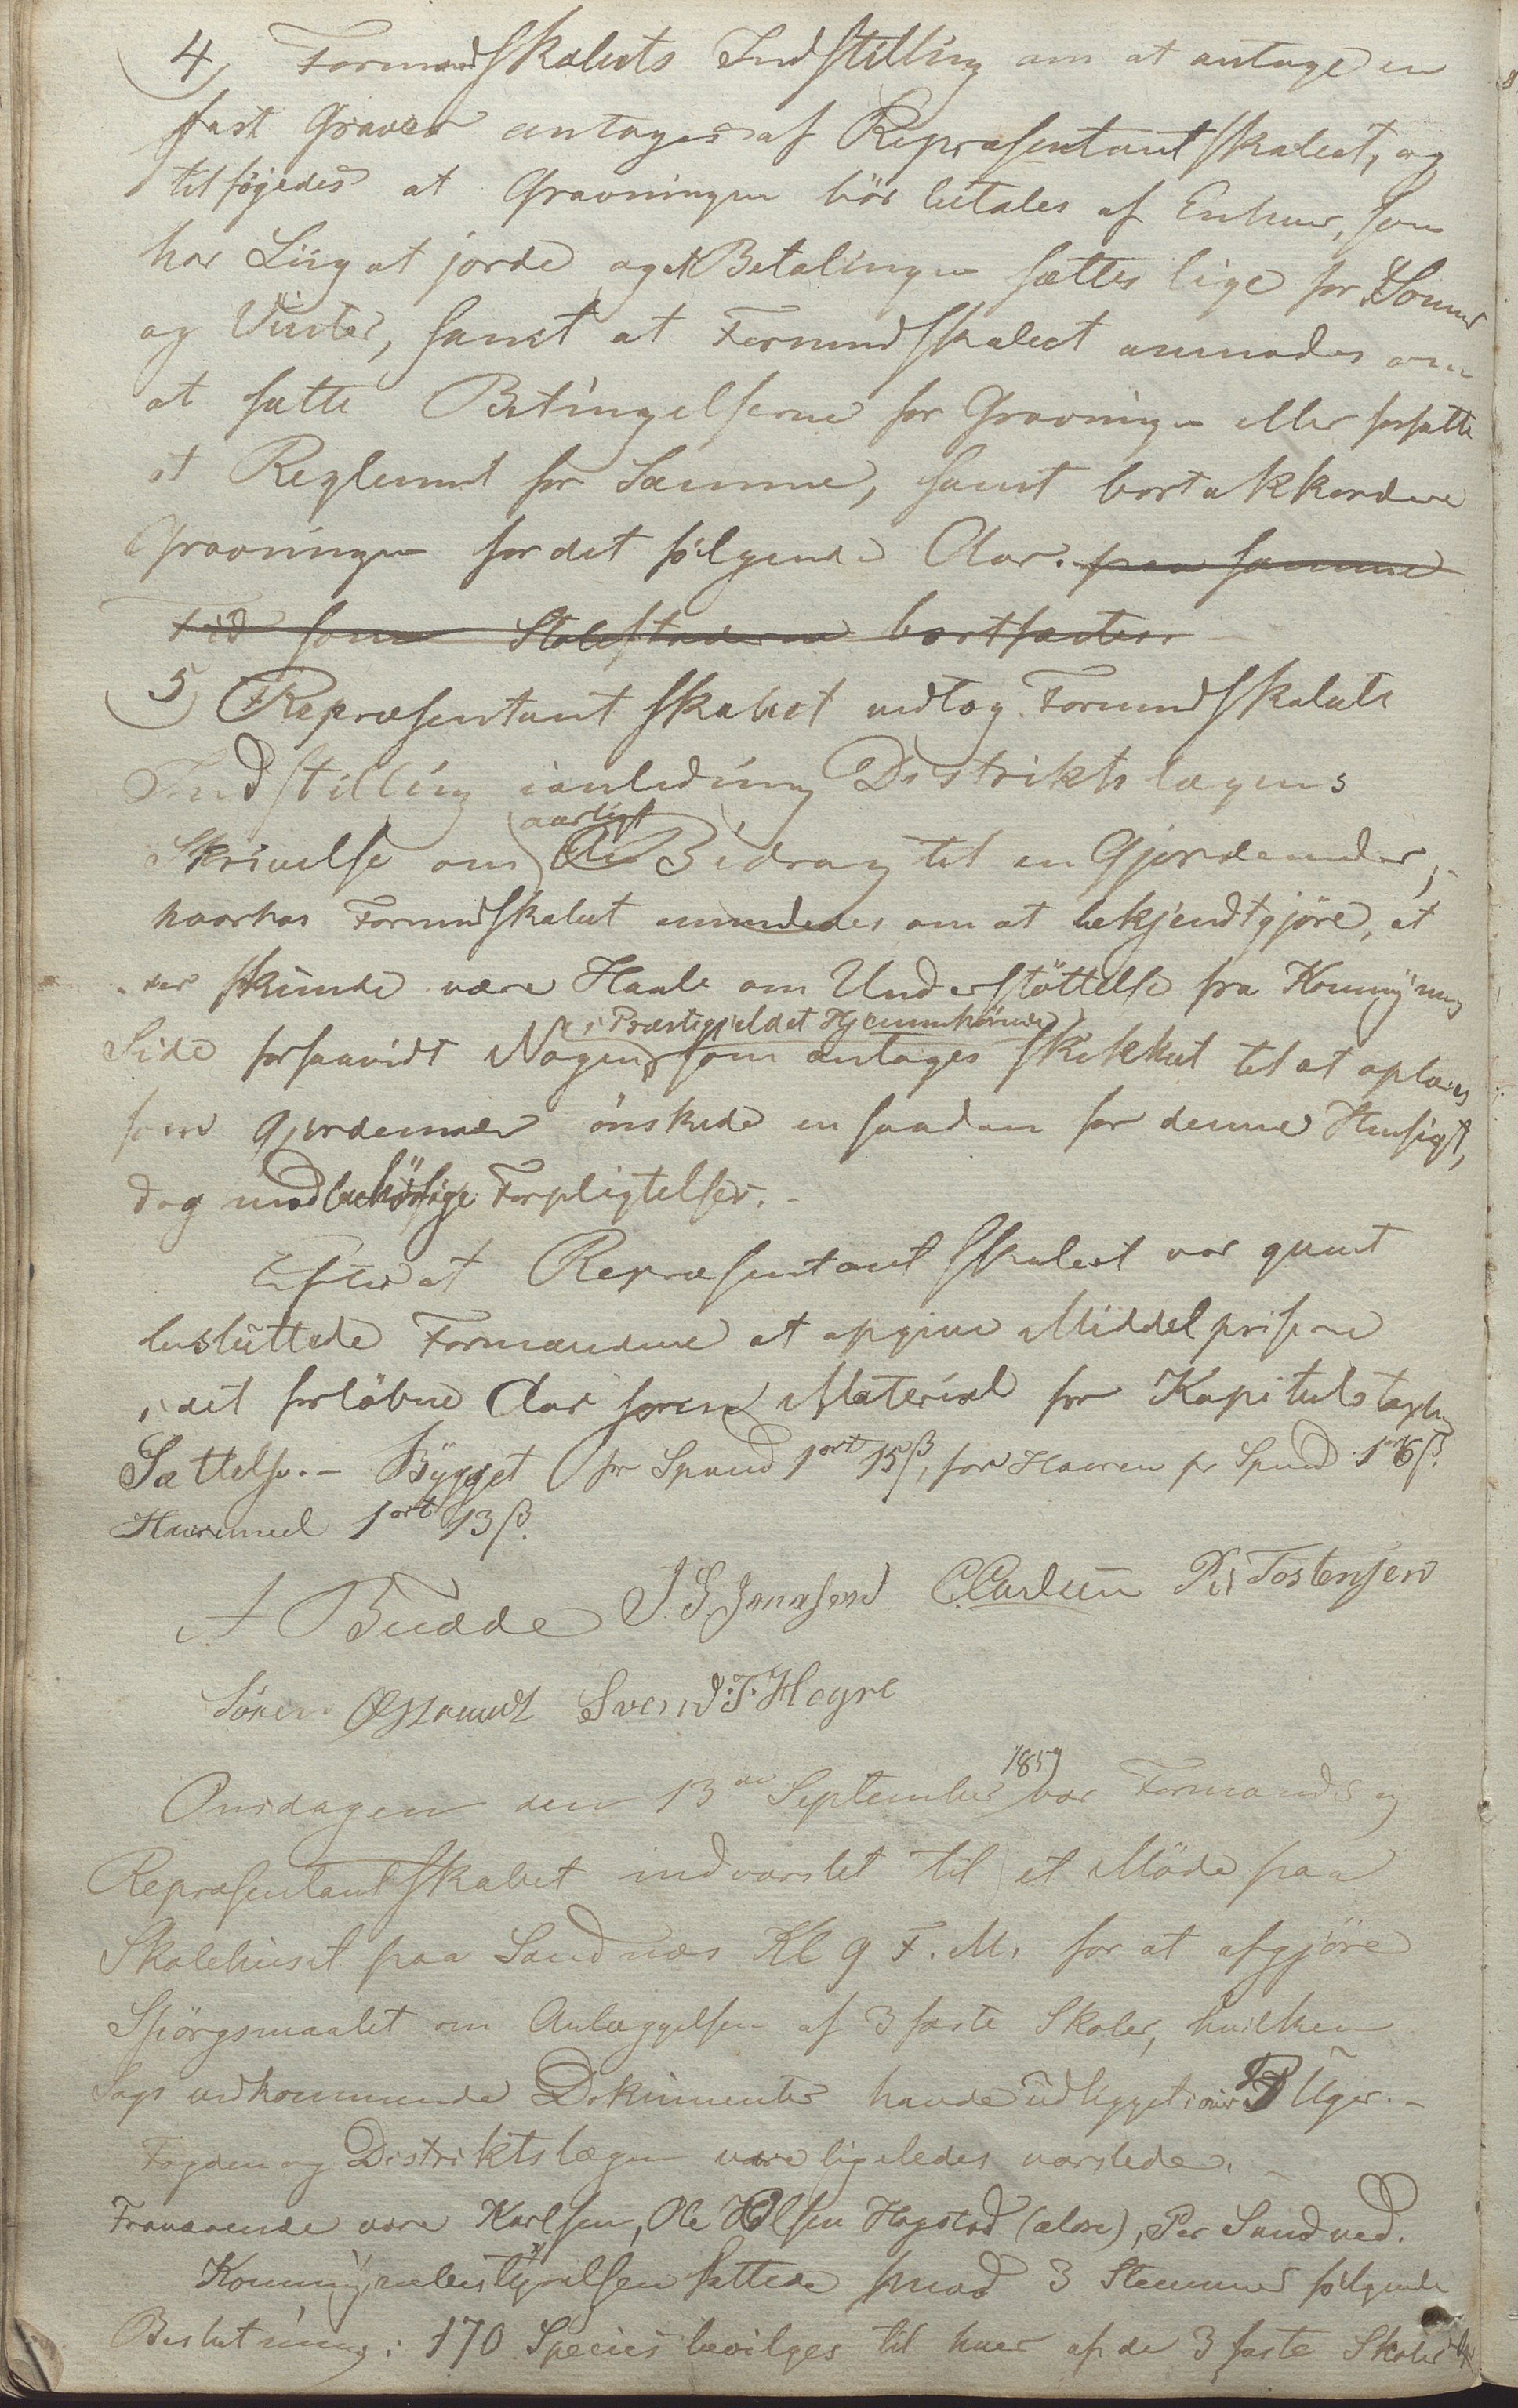 4, Formandskabets Indstilling om at antage en
fast Graver antoges af Repræsentantskabet, og
tilføjedes at Gravningen bör betales af Enhver, som
har Liig at jorde og at Betalingen sættes lige for Sommer
og Vinter, samt at Formandskabet anmodes om
at sætte Betingelserne for Gravningen eller forfatte
et Reglement for Samme, samt bortakkordere
Gravningen for det følgende Aar. paa samme
Tid som Stolestaderne bortfæstes.
5, Repræsentantskabet vedtog Formandskabets
Indstilling i anledning Distriktslægens
aarligt
Skrivelse om Bidrag til en Gjordemoder,
hvorhos Formandskabet anmodedes om at bekjendtgjöre, at
der skunde være Haab om Understöttelse fra Kommunens
i Præstegjeldet Hjemmehörende
Side forsaavidt Nogen, som antages skikket til at oplæres
som Gjordemoder önskede en saadan for denne Hensigt,
dog mod behörige Forpligtelser.
Efter at Repræsentantskabet var gaaet
besluttede Formændene at opgive Middelpriserne
i det forløbne Aar som Material for Kapitelstaxtens
Sættelse. – Bygget pr Spand 1 ort 15 β, for Havren pr Spand 1 ort 6 β.
Havremeel 1 ort 13 β.
A Budde J. S. Jonassen C. Carlsen Per Tostensen
Sören Östraadt Svend T. Hogre
1859
Onsdagen den 13de September var Formands og
Repræsentantskabet indvarslet til et Möde paa
Skolehuset paa Sandnæs Kl 9 F. M. for at afgjöre
Spörgsmaalet om Anlæggelsen af 3 faste Skoler, hvilken
Sags vedkommende Dokumenter havde udligget i over Uger. –
Fogden og Distriktslægen vare ligeledes varslede. –
Fraværende vare Karlsen, Ole Olsen Hogstad (ældre), Per Sandved.
Kommunebestyrelsen fattede mod 3 Stemmer følgende
Beslutning: 170 Species bevilges til hver af de 3 faste Skoler